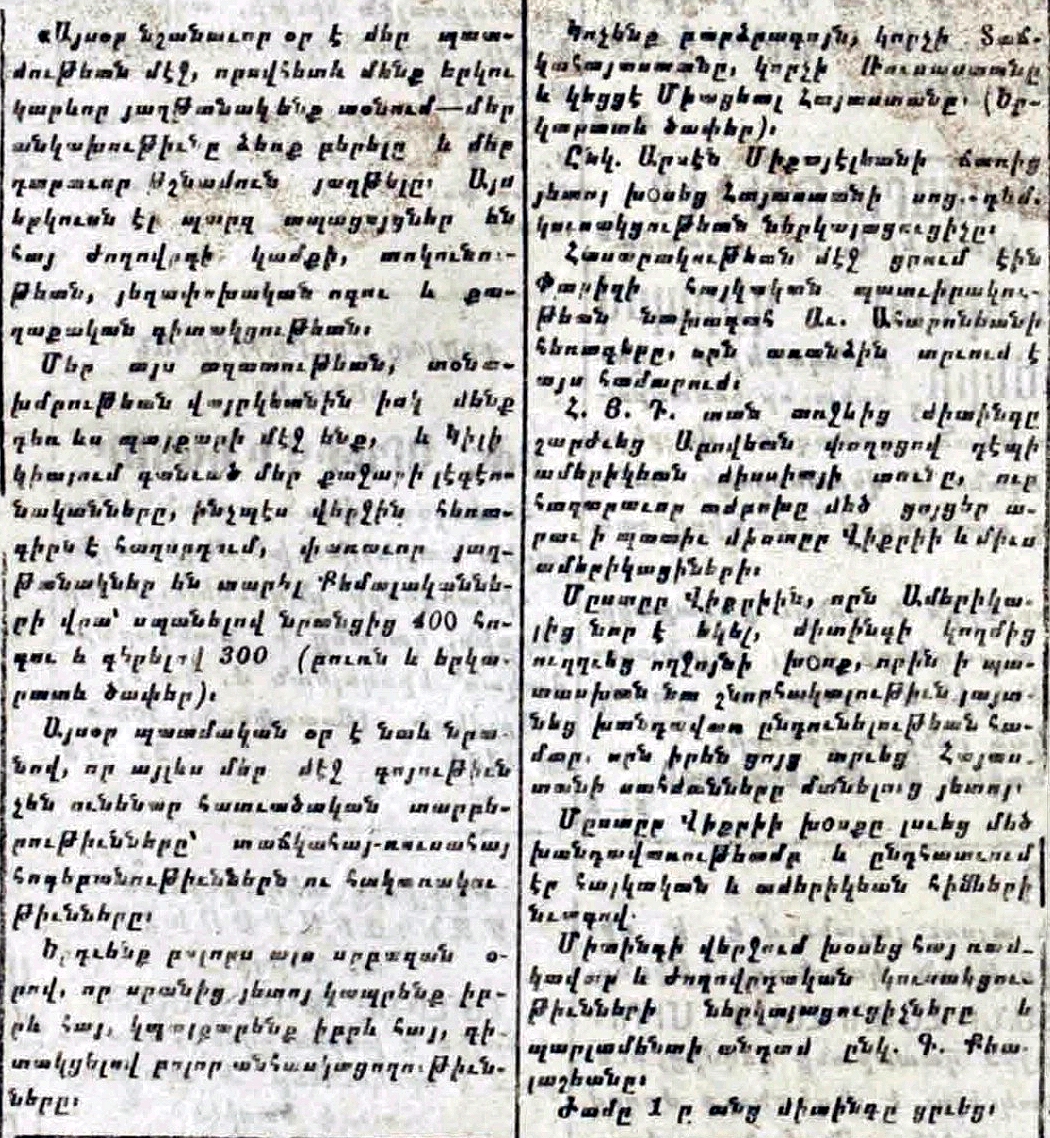 «Այսօր նշանաւոր օր է մեր պատ-
մութեան մէջ, որովհետև մենք երկու
կարևոր յաղթանակ ենք տօնում—մեր
անկախութիւնը ձեռք բերելը և մեր
դարաւոր թշնամուն յաղթելը։ Այս
երկուսն էլ պարզ ապացոյցներ են
հայ ժողովրդի կամքի, տոկունու-
թեան, յեղափոխական ոգու և քա-
ղաքական գիտակցութեան։
Մեր այս ազատութեան, տօնա-
խմբութեան վայրկեանին իսկ մենք
դեռ ևս պայքարի մէջ ենք, և Կիլի
կիայում գտնւած մեր քաջարի լէգէո-
նականները, ինչպէս վերջին հեռա-
գիրն է հաղորդում, փառաւոր յաղ-
թանակներ են տարել Քեմալականնե-
րի վրայ՝ սպանելով նրանցից 400 հո-
գու և գերելով 300 (բուռն և երկա-
րատև ծափեր)։
Այսօր պատմական օր է նաև նրա-
նով, որ այլևս մեր մէջ գոյութիւն
չեն ունենար հատւածական տարբե-
րութիւնները՝ տաճկահայ-ռուսահայ
հոգեբանութիւններն ու հակառակու
թիւնները։
Երդւենք բոլորս այս սրբազան օ-
րով, որ սրանից յետոյ կապրենք իբ-
րև հայ, կպայքարենք իբրև հայ, գի-
տակցելով բոլոր անհասկացողութիւն-
ները։
Կոչենք բարձրագոյն, կորչի Տաճ-
կահայաստանը, կորչի Ռուսաստանը
և կեցցէ Միացեալ Հայաստանը։ (Եր-
կարատև ծափեր)։
Ընկ. Արսէն Միքայէլեանի ճառից
յետոյ խօսեց Հայաստանի սոց.-դեմ.
կուսակցութեան ներկայացուցիչը։
Հասարակութեան մէջ ցրում էին
Փարիզի հայկական պատւիրակու-
թեան նախագահ Աւ. Ահարոնեանի
հեռագերը, որն առանձին տրւում է
այս համարում։
Հ. Յ. Դ. տան առջևից միտինգը
շարժւեց Աբովեան փողոցով դէպի
ամերիկեան միսսիայի տունը, ուր
հաղարաւոր ամբոխը մեծ ցոյցեր ա-
րաւ ի պատիւ միստըր Վիքրիի և միւս
ամերիկացիների։
Մըստըր Վիքրիին, որն Ամերիկա-
յից նոր է եկել, միտինգի կողմից
ուղղւեց ողջոյնի խօսք, որին ի պա-
տասխան նա շնորհակալութիւն յայտ-
նեց խանդավառ ընդունելութեան հա-
մար, որն իրեն ցոյց տրւեց Հայաս-
տանի սահմանները մտնելուց յետոյ։
Մըստըր Վիքրիի խօսքը լսւեց մեծ
խանդավառութեամբ և ընդհատւում
էր հայկական և ամերիկեան հիմների
նւագով.
Միտինգի վերջում խօսեց հայ ռամ-
կավար և ժողովրդական կուսակցու-
թիւնների ներկայացուցիչները և
պարլամենտի անդամ ընկ. Գ. Քեա-
լաշեանը։
Ժամը 1 ը անց միտինգը ցրւեց։